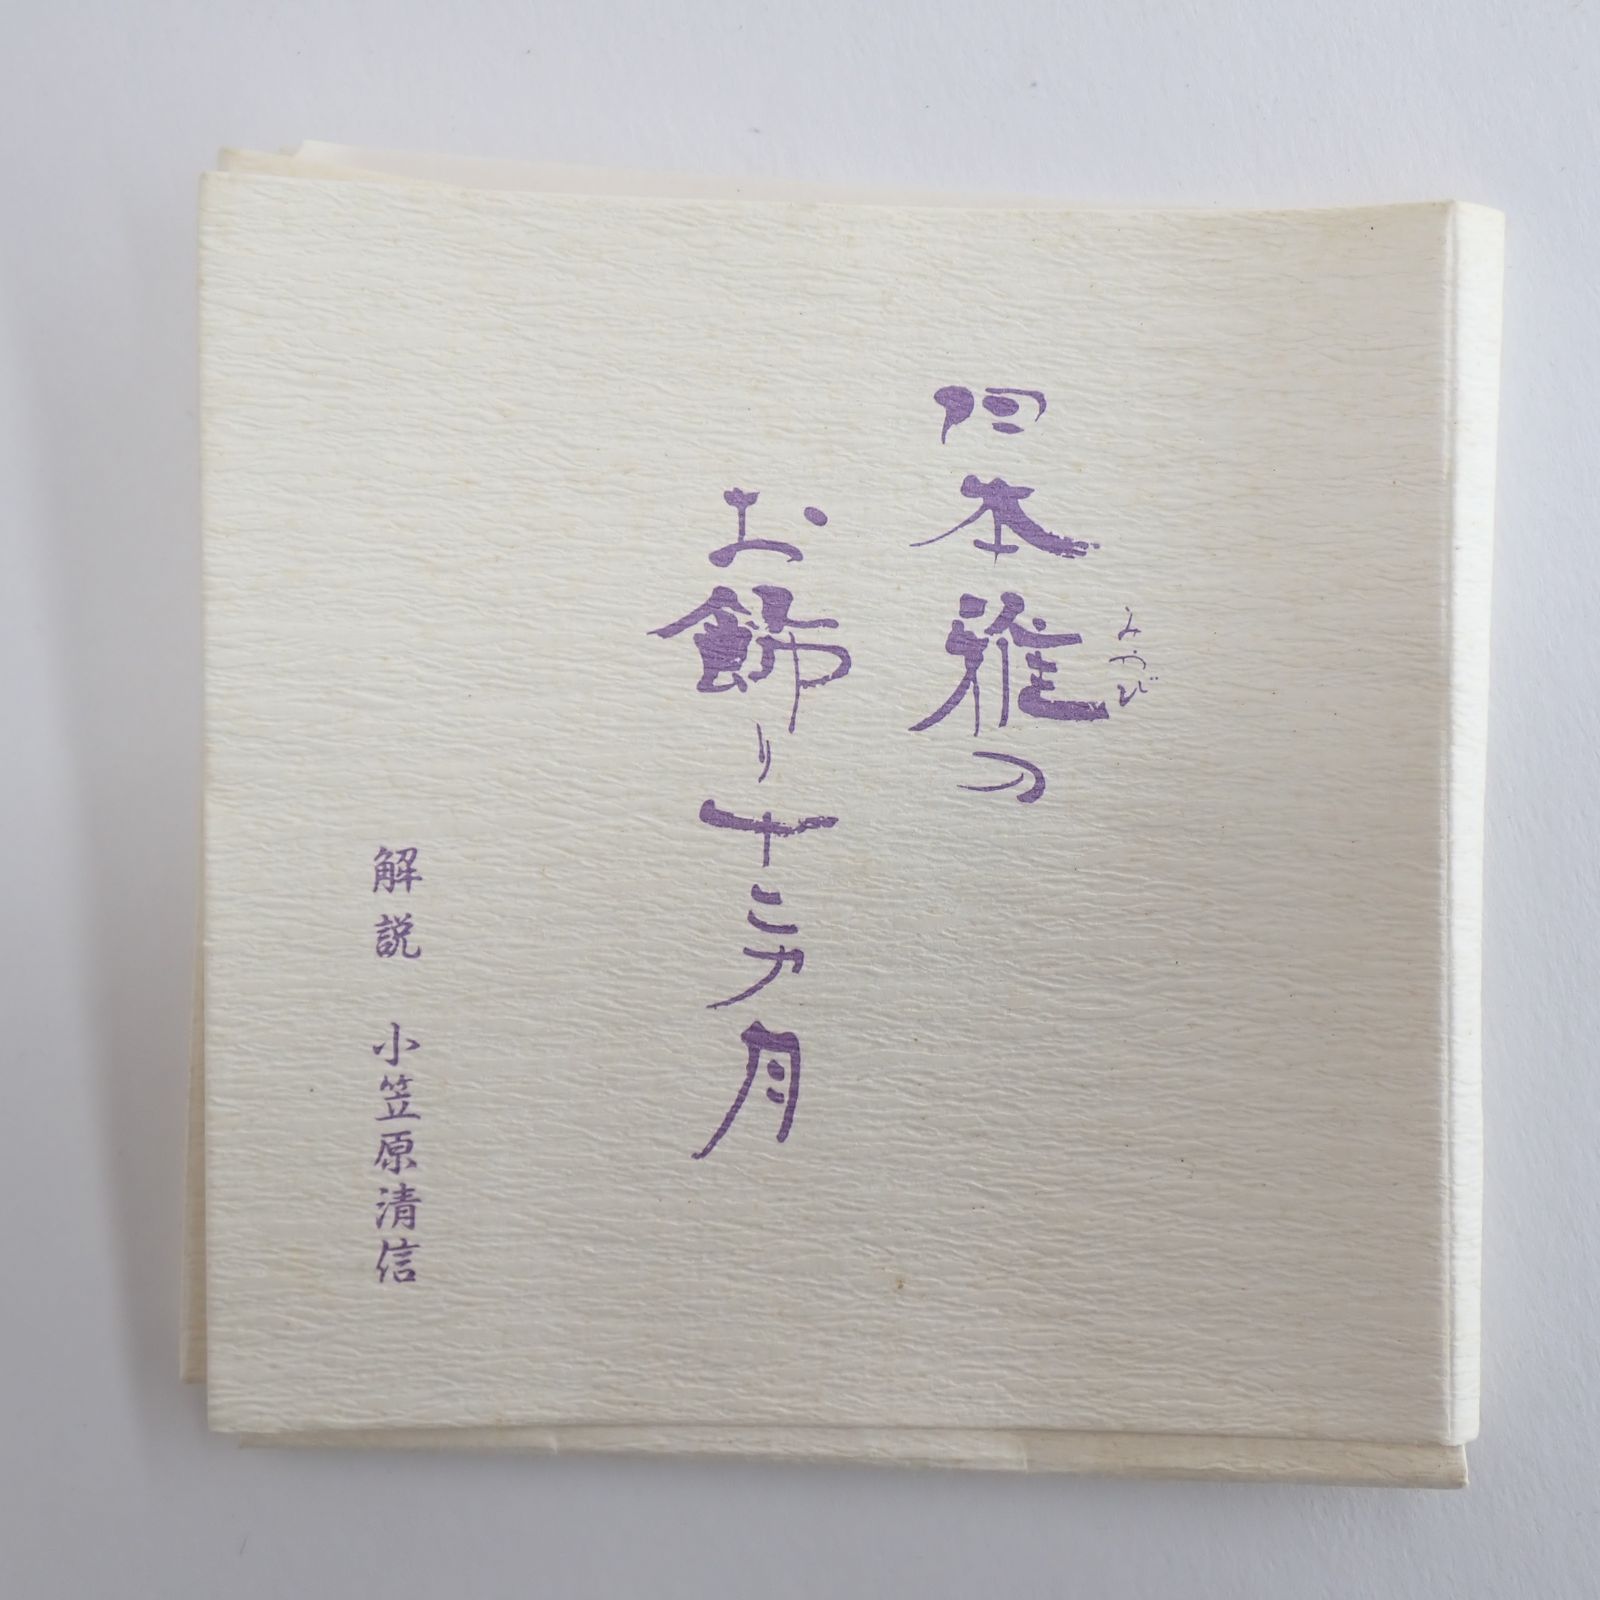 日本雅の
みやび
お飾り十二カ月
解説 小笠原清信